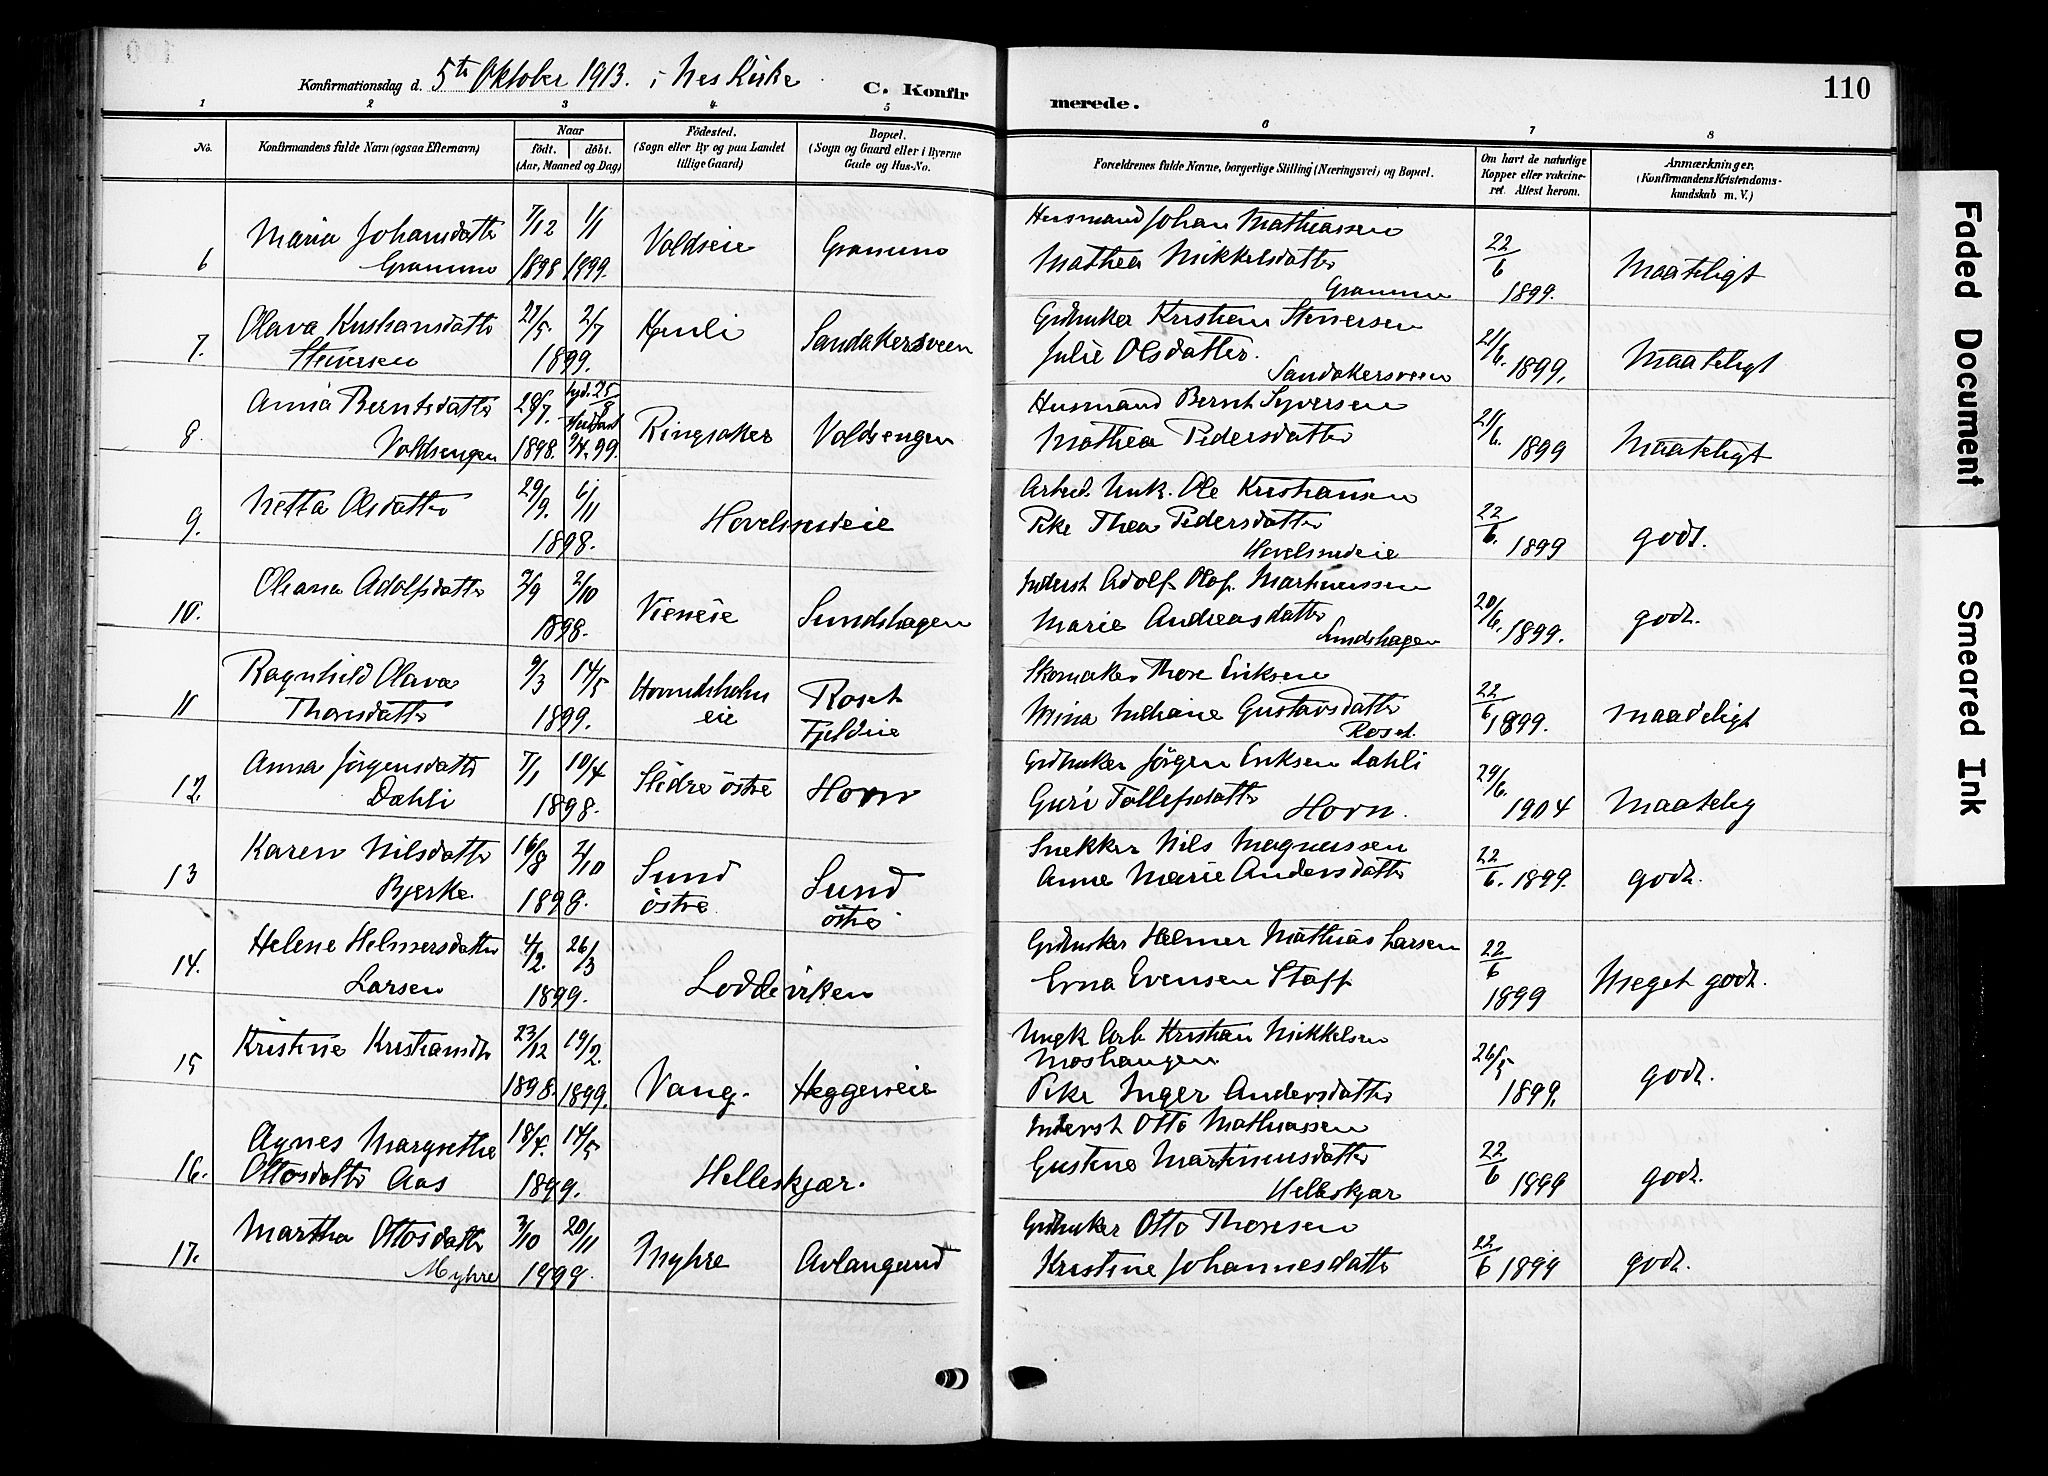 110
Konfirmationsdag d. 5te Oktober 1913. i Nes Kirke
C. Konfirmerede.
1 2 3 4 5 6 7 8
No.
Konfirmandens fulde Navn (ogsaa Efternavn)
Naar
födt. döbt.
(Aar, Maaned og Dag)
Födested.
(Sogn eller By og paa Landet
tillige Gaard)
Bopæl.
(Sogn og Gaard eller i Byerne
Gade og Hus-No.
Forældrenes fulde Navne, borgerlige Stilling (Næringsvei) og Bopæl.
Om havt de naturlige
Kopper eller vakcine-
ret. Attest herom.
Anmærkninger.
(Konfirmandens Kristendoms-
kundskab m. V.)
6 Maria Johansdatter 7/12 1/1 Valdseie Husmand Johan Mathiassen
Grammo 1898 1899. Gramuno Mathea Mikkelsdatter 22/6 Maateligt
1899.
7. Olava Kristiansdatter 27/5 2/7 Henli Sandakersveen Gdbruker Kristian Stenersen
Stenersen 1899. Julie Olsdatter. 21/6. 1899. Maateligt
Sandakersveen
8. Anna Berntsdatter 28/7. Ringsaker Valdsengen Husmand Bernt Syversen
Valdsengen 1898. 2/4. 99. Mathea Pedersdatter 21/6. 1899 Maateligt
9. Netta Olsdatter 29/9. 6/11 Hovelsrudeie Arbeid. Unk. Ole Kristiansen
1898. Pike Thea Pedersdatter 22/6. 1899 godt.
Hovelsrudeie
10. Oleana Adolfsdatter 2/9 2/10 Vieneie Sundshagen Inderst Adolf Olof Martinussen
1898. Marie Andreasdatter 20/6. 1899. godt.
Sundshagen
11 Ragnhild Olava 9/3 14/5 Roset Skomaker Thore Eriksen
Thoresdatter 1899. eie Fjeldeie Gustavsdatter 22/6 1899. maadeligt
Roset
12. Anna Jörgensdatter 7/1 10/4 Slidre östre Horn Gdbruker Jörgen Eriksen Dahli
Dahli 1898. Guri Tollefsdatter Horn. 29/6. 1904 Maatelig
13 Karen Nilsdatter 16/8 2/10 Sund Sund Snekker Nils Magnussen
Bjerke. 1898. östre. östre. Anne Marie Andersdatter 22/6. 1899. godt.
14. Helene Helmersdatter 4/2. 26/3 Loddviken Gdbruker Helmer Mathias Larsen
Larsen 1899. Erna Evensen Staff 22/6 1899 Meget godt.
15 Kristine Kristiansdtr 23/12 19/2. Vang. Heggerseie Ungk Arb Kristian Mikkelsen
Moshaugen
1898. 1899. Pike Inger Andersdatter 26/5 1899. godt.
16. Agnes Margrethe 18/4. 14/5 Helleskjær. Inderst Otto Mathiassen
Ottosdatter Aas 1899. Gustine Martinusdatter 22/6 1899 godt.
Helleskjær
17. Martha Ottosdatter 3/10 20/11 Myhre Avlangrud Gdbruker Otto Thoresen
Myhre 1899. Kristine Johannesdatter 22/6 1899 godt.
Faded Document
Smeared Ink